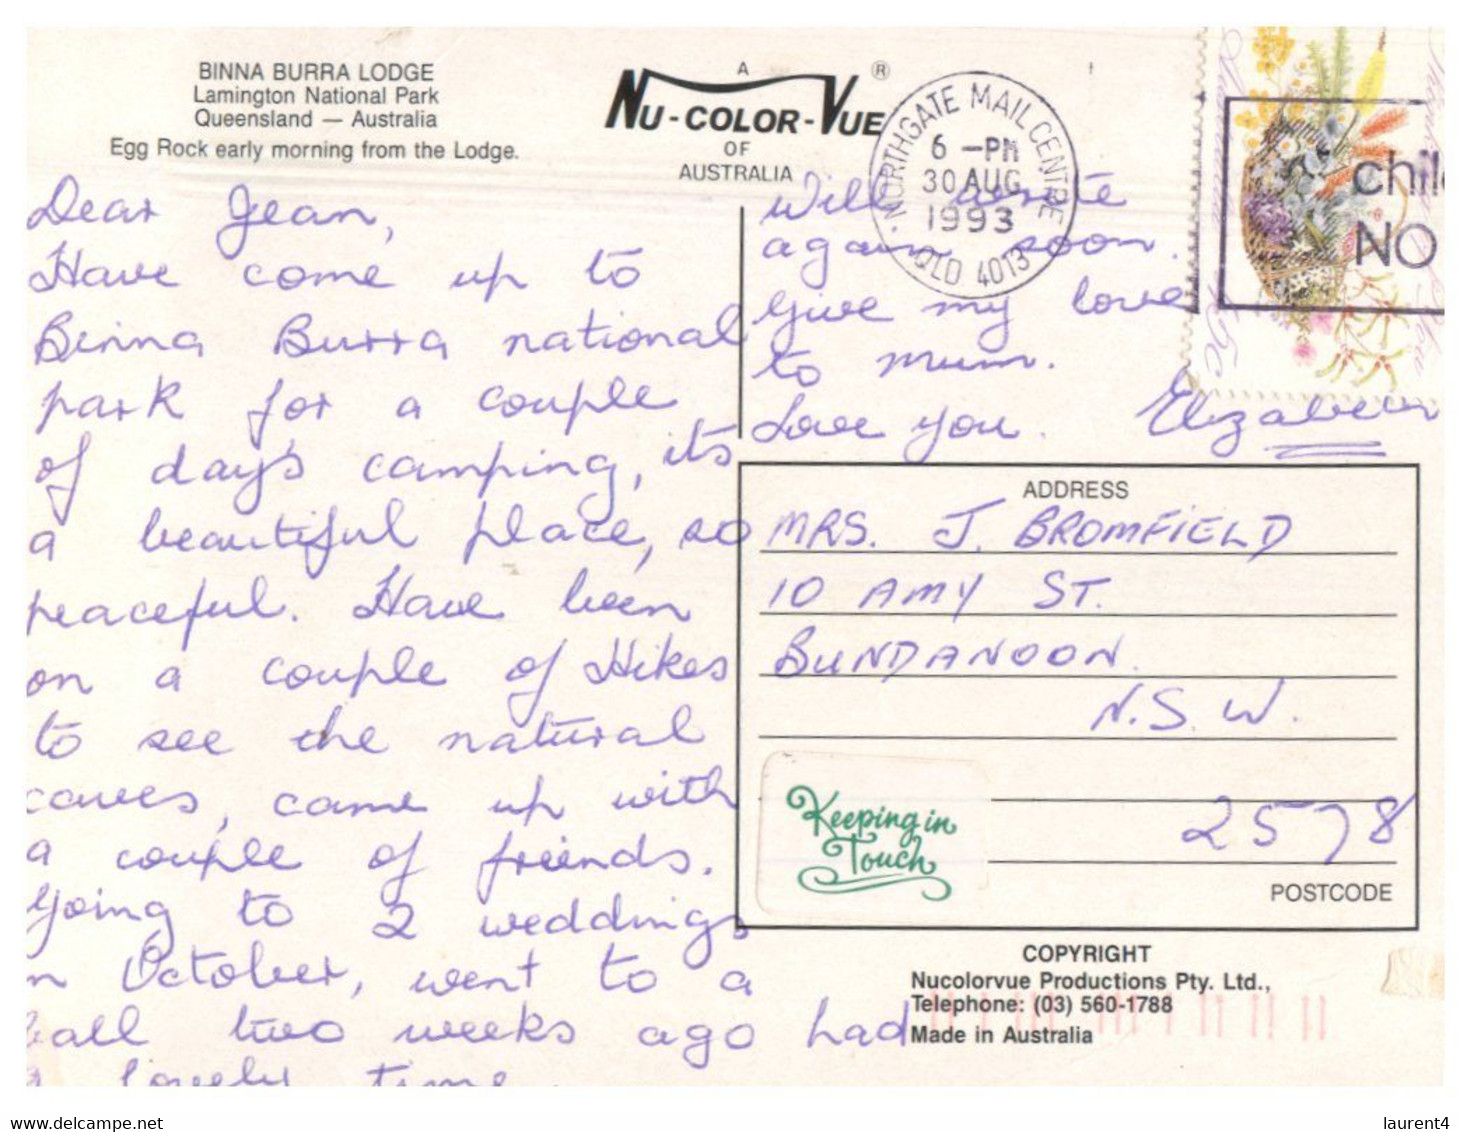 BINNA BURRA LODGE
Lamington National Park
Queensland — Australia
Egg Rock early morning from the Lodge.
A ®
NU-COLOR-VUE
OF
AUSTRALIA
NORTHGATE MAIL CENTRE
6 -PM
30 AUG
1993
QLD 4013
chil
NO
Dear Jean,
Have come up to
Binna Burra national
park for a couple
of day's camping, it's
a beautiful place, so
peaceful. Have been
on a couple of Hikes
to see the natural
caves, came up with
a couple of friends.
Going to 2 weddings
n October, went to a
ball two weeks ago had
a lovely time
Will write
again soon.
Give my love
to mum.
Love you. Elizabeth
ADDRESS
MRS. J. BROMFIELD
10 AMY ST.
BUNDANOON.
N.S.W.
2578
POSTCODE
Keeping in
Touch
COPYRIGHT
Nucolorvue Productions Pty. Ltd.,
Telephone: (03) 560-1788
Made in Australia
www.delcampe.net
laurent4